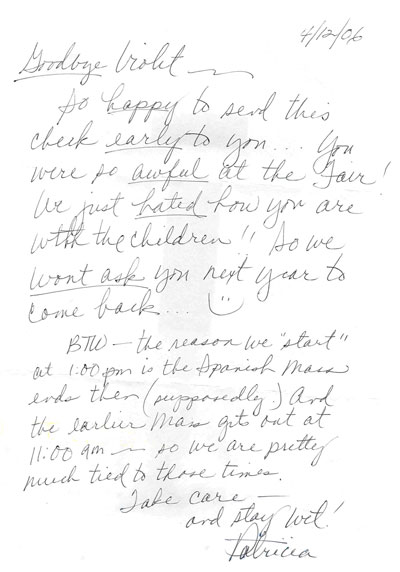 4/12/06
Goodbye Violet —
So happy to send this
check early to you... You
were so awful at the Fair!
We just hated how you are
with the children!! So we
wont ask you next year to
come back...
BTW - the reason we "start"
at 1:00 pm is the Spanish Mass
ends then (supposedly.) And
the earlier Mass gets out at
11:00 am — so we are pretty
much tied to those times.
Take care —
and stay wet!
Patricia